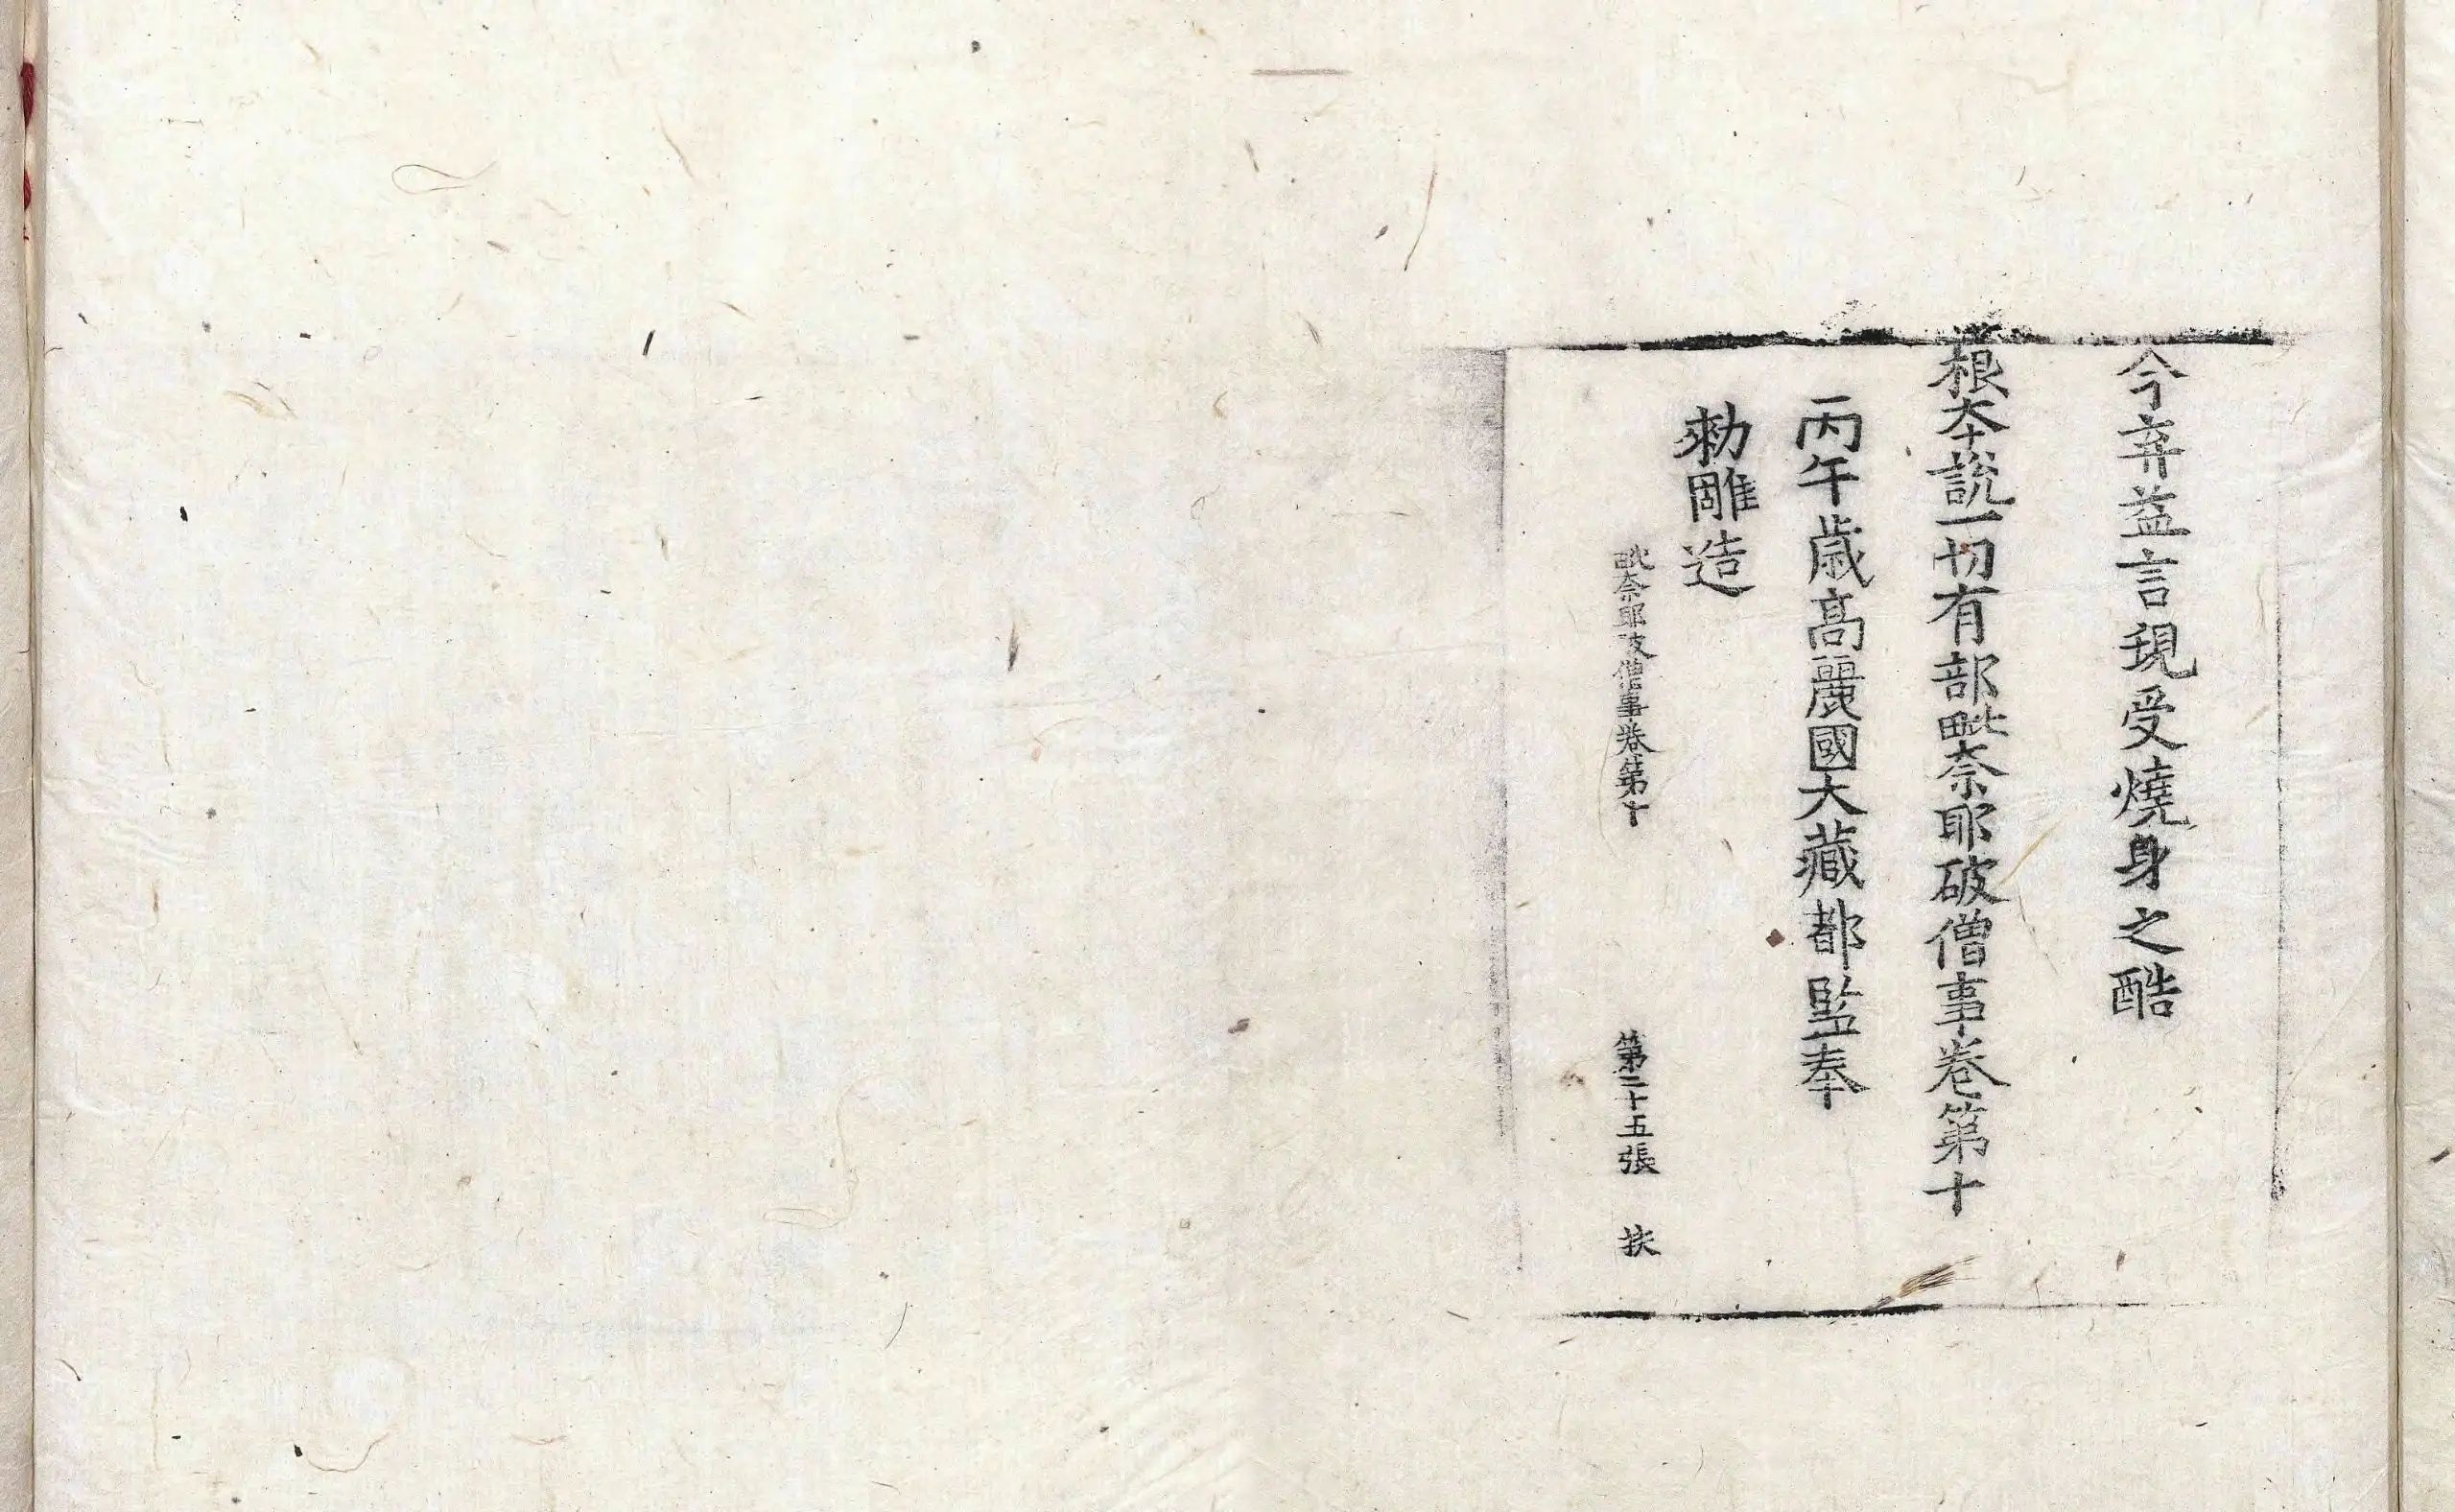 今弃益言現受燒身之酷
根本說一切有部毗奈耶破僧事卷第十
丙午歳髙麗國大藏都監奉
勑雕造
毗奈耶破僧事卷第十 第二十五張 扶